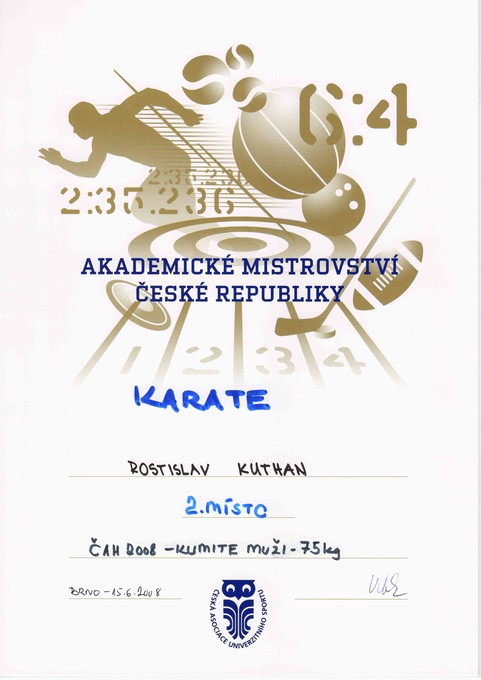 6:4
2:35.236
2:35.236
AKADEMICKÉ MISTROVSTVÍ
ČESKÉ REPUBLIKY
1 2 3 4
KARATE
ROSTISLAV KUTHAN
2. MÍSTO
ČAH 2008 - KUMITE MUŽI - 75kg
BRNO - 15.6.2008
ČESKÁ ASOCIACE UNIVERZITNÍHO SPORTU